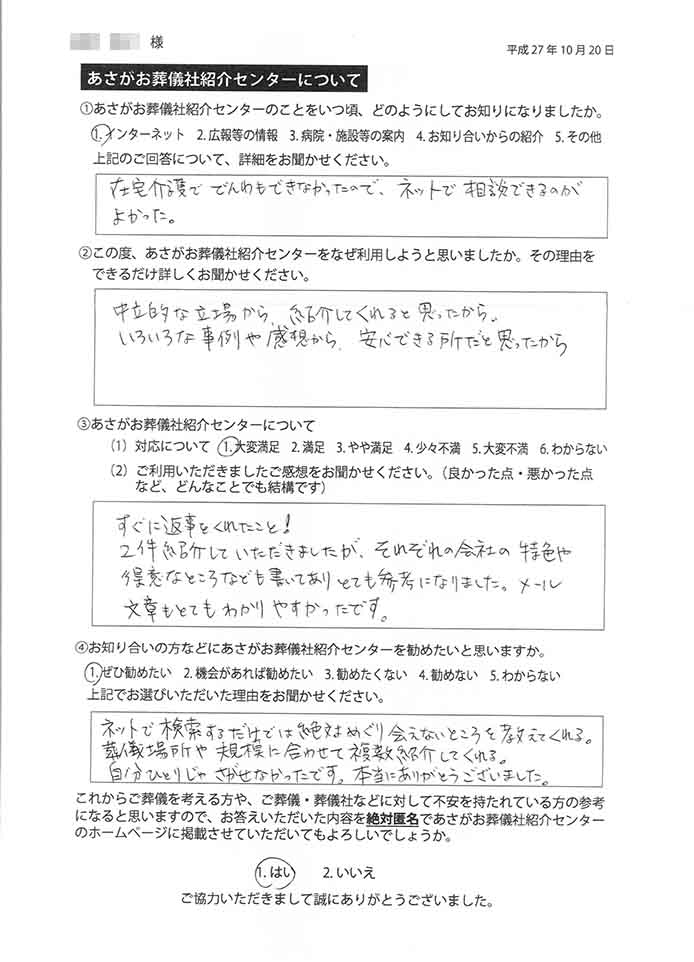 様
平成27年10月20日
あさがお葬儀社紹介センターについて
①あさがお葬儀社紹介センターのことをいつ頃、どのようにしてお知りになりましたか。
1.インターネット 2.広報等の情報 3.病院・施設等の案内 4.お知り合いからの紹介 5.その他
上記のご回答について、詳細をお聞かせください。
在宅介護で でんわもできなかったので、ネットで相談できるのが
よかった。
②この度、あさがお葬儀社紹介センターをなぜ利用しようと思いましたか。その理由を
できるだけ詳しくお聞かせください。
中立的な立場から、紹介してくれると思ったから。
いろいろな事例や感想から、安心できる所だと思ったから
③あさがお葬儀社紹介センターについて
(1) 対応について 1.大変満足 2.満足 3.やや満足 4.少々不満 5.大変不満 6.わからない
(2) ご利用いただきましたご感想をお聞かせください。(良かった点・悪かった点
など、どんなことでも結構です)
すぐに返事をくれたこと!
2件紹介していただきましたが、それぞれの会社の特色や
得意なところなども書いてありとても参考になりました。メール
文章もとてもわかりやすかったです。
④お知り合いの方などにあさがお葬儀社紹介センターを勧めたいと思いますか。
1.ぜひ勧めたい 2.機会があれば勧めたい 3.勧めたくない 4.勧めない 5.わからない
上記でお選びいただいた理由をお聞かせください。
ネットで検索するだけでは絶対めぐり会えないところを教えてくれる。
葬儀場所や規模に合わせて複数紹介してくれる。
自分ひとりじゃさがせなかったです。本当にありがとうございました。
これからご葬儀を考える方や、ご葬儀・葬儀社などに対して不安を持たれている方の参考
になると思いますので、お答えいただいた内容を絶対匿名であさがお葬儀社紹介センター
のホームページに掲載させていただいてもよろしいでしょうか。
1.はい 2.いいえ
ご協力いただきまして誠にありがとうございました。